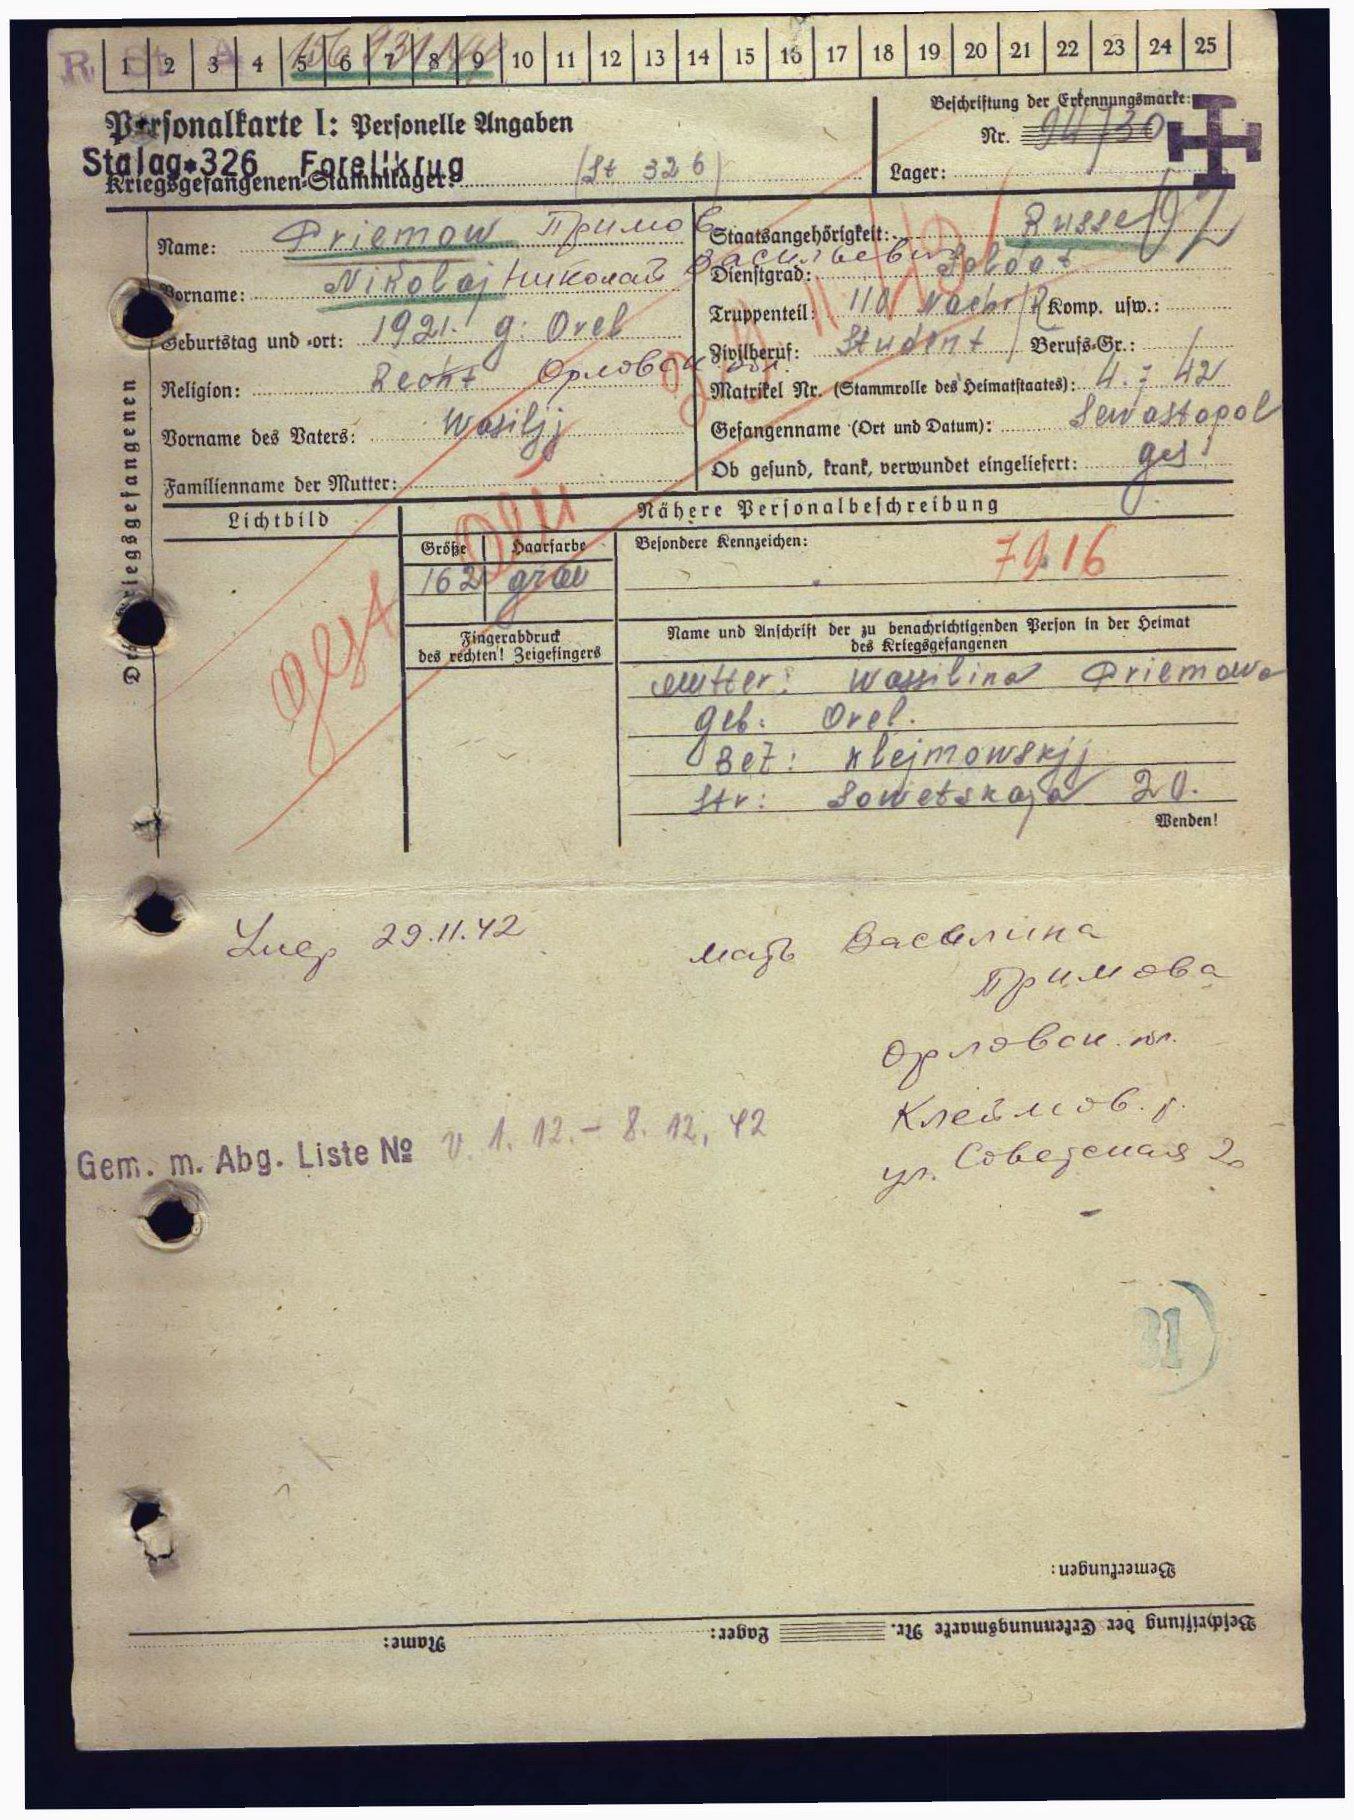 R St A
1 2 3 4 5 6 7 8 9 10 11 12 13 14 15 16 17 18 19 20 21 22 23 24 25
Personalkarte I: Personelle Angaben
Stalag 326 Forellkrug
Kriegsgefangenen-Stammlager: (St 326)
Beschriftung der Erkennungsmarke:
Nr. 94730
Lager:
Name: Priemow Примов
Vorname: Nikolaj Николай Васильевич
Geburtstag und -ort: 1921. g: Orel
Орловск. обл.
Religion:
Vorname des Vaters: Wasilij
Familienname der Mutter:
Staatsangehörigkeit: Russe
Dienstgrad: Soldat
Truppenteil: 110 Nachr/R Komp. usw.:
Zivilberuf: Student Berufs-Gr.:
Matrikel Nr. (Stammrolle des Heimatstaates): 4. 7 42
Gefangenname (Ort und Datum): Sewastopol
Ob gesund, krank, verwundet eingeliefert: ges
Des Kriegsgefangenen
Lichtbild
Nähere Personalbeschreibung
Größe Haarfarbe Besondere Kennzeichen:
162 grau
7916
gest
Fingerabdruck
des rechten! Zeigefingers
Name und Anschrift der zu benachrichtigenden Person in der Heimat
des Kriegsgefangenen
Mutter: Wassilina Priemowa
Geb: Orel.
Bez: Klejmowskij
Str: Sowetskaja 20.
Wenden!
Умер 29.11.42
мать Василина
Примова
Орловск. обл.
Клеймов. р.
ул. Советская 20
Gem. m. Abg. Liste № v. 1. 12. - 8. 12. 42
31
Bemerkungen:
Beschriftung der Erkennungsmarke Nr. Lager: Name: